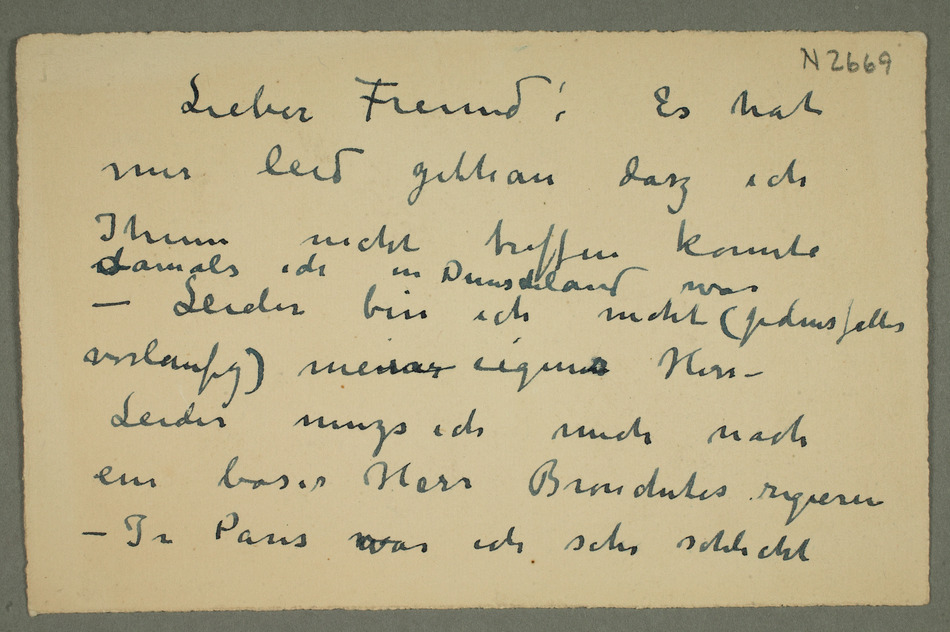 N 2669
Lieber Freund! Es hat
mir leid gethan dasz ich
Ihnen nicht treffen konnte
damals ich in Deutschland war
— Leider bin ich nicht (jedensfalles
vorlaufig) meiner eigener Herr —
Leider musz ich mich nach
ein boser Herr Bronchites regieren
— In Paris war ich sehr schlecht